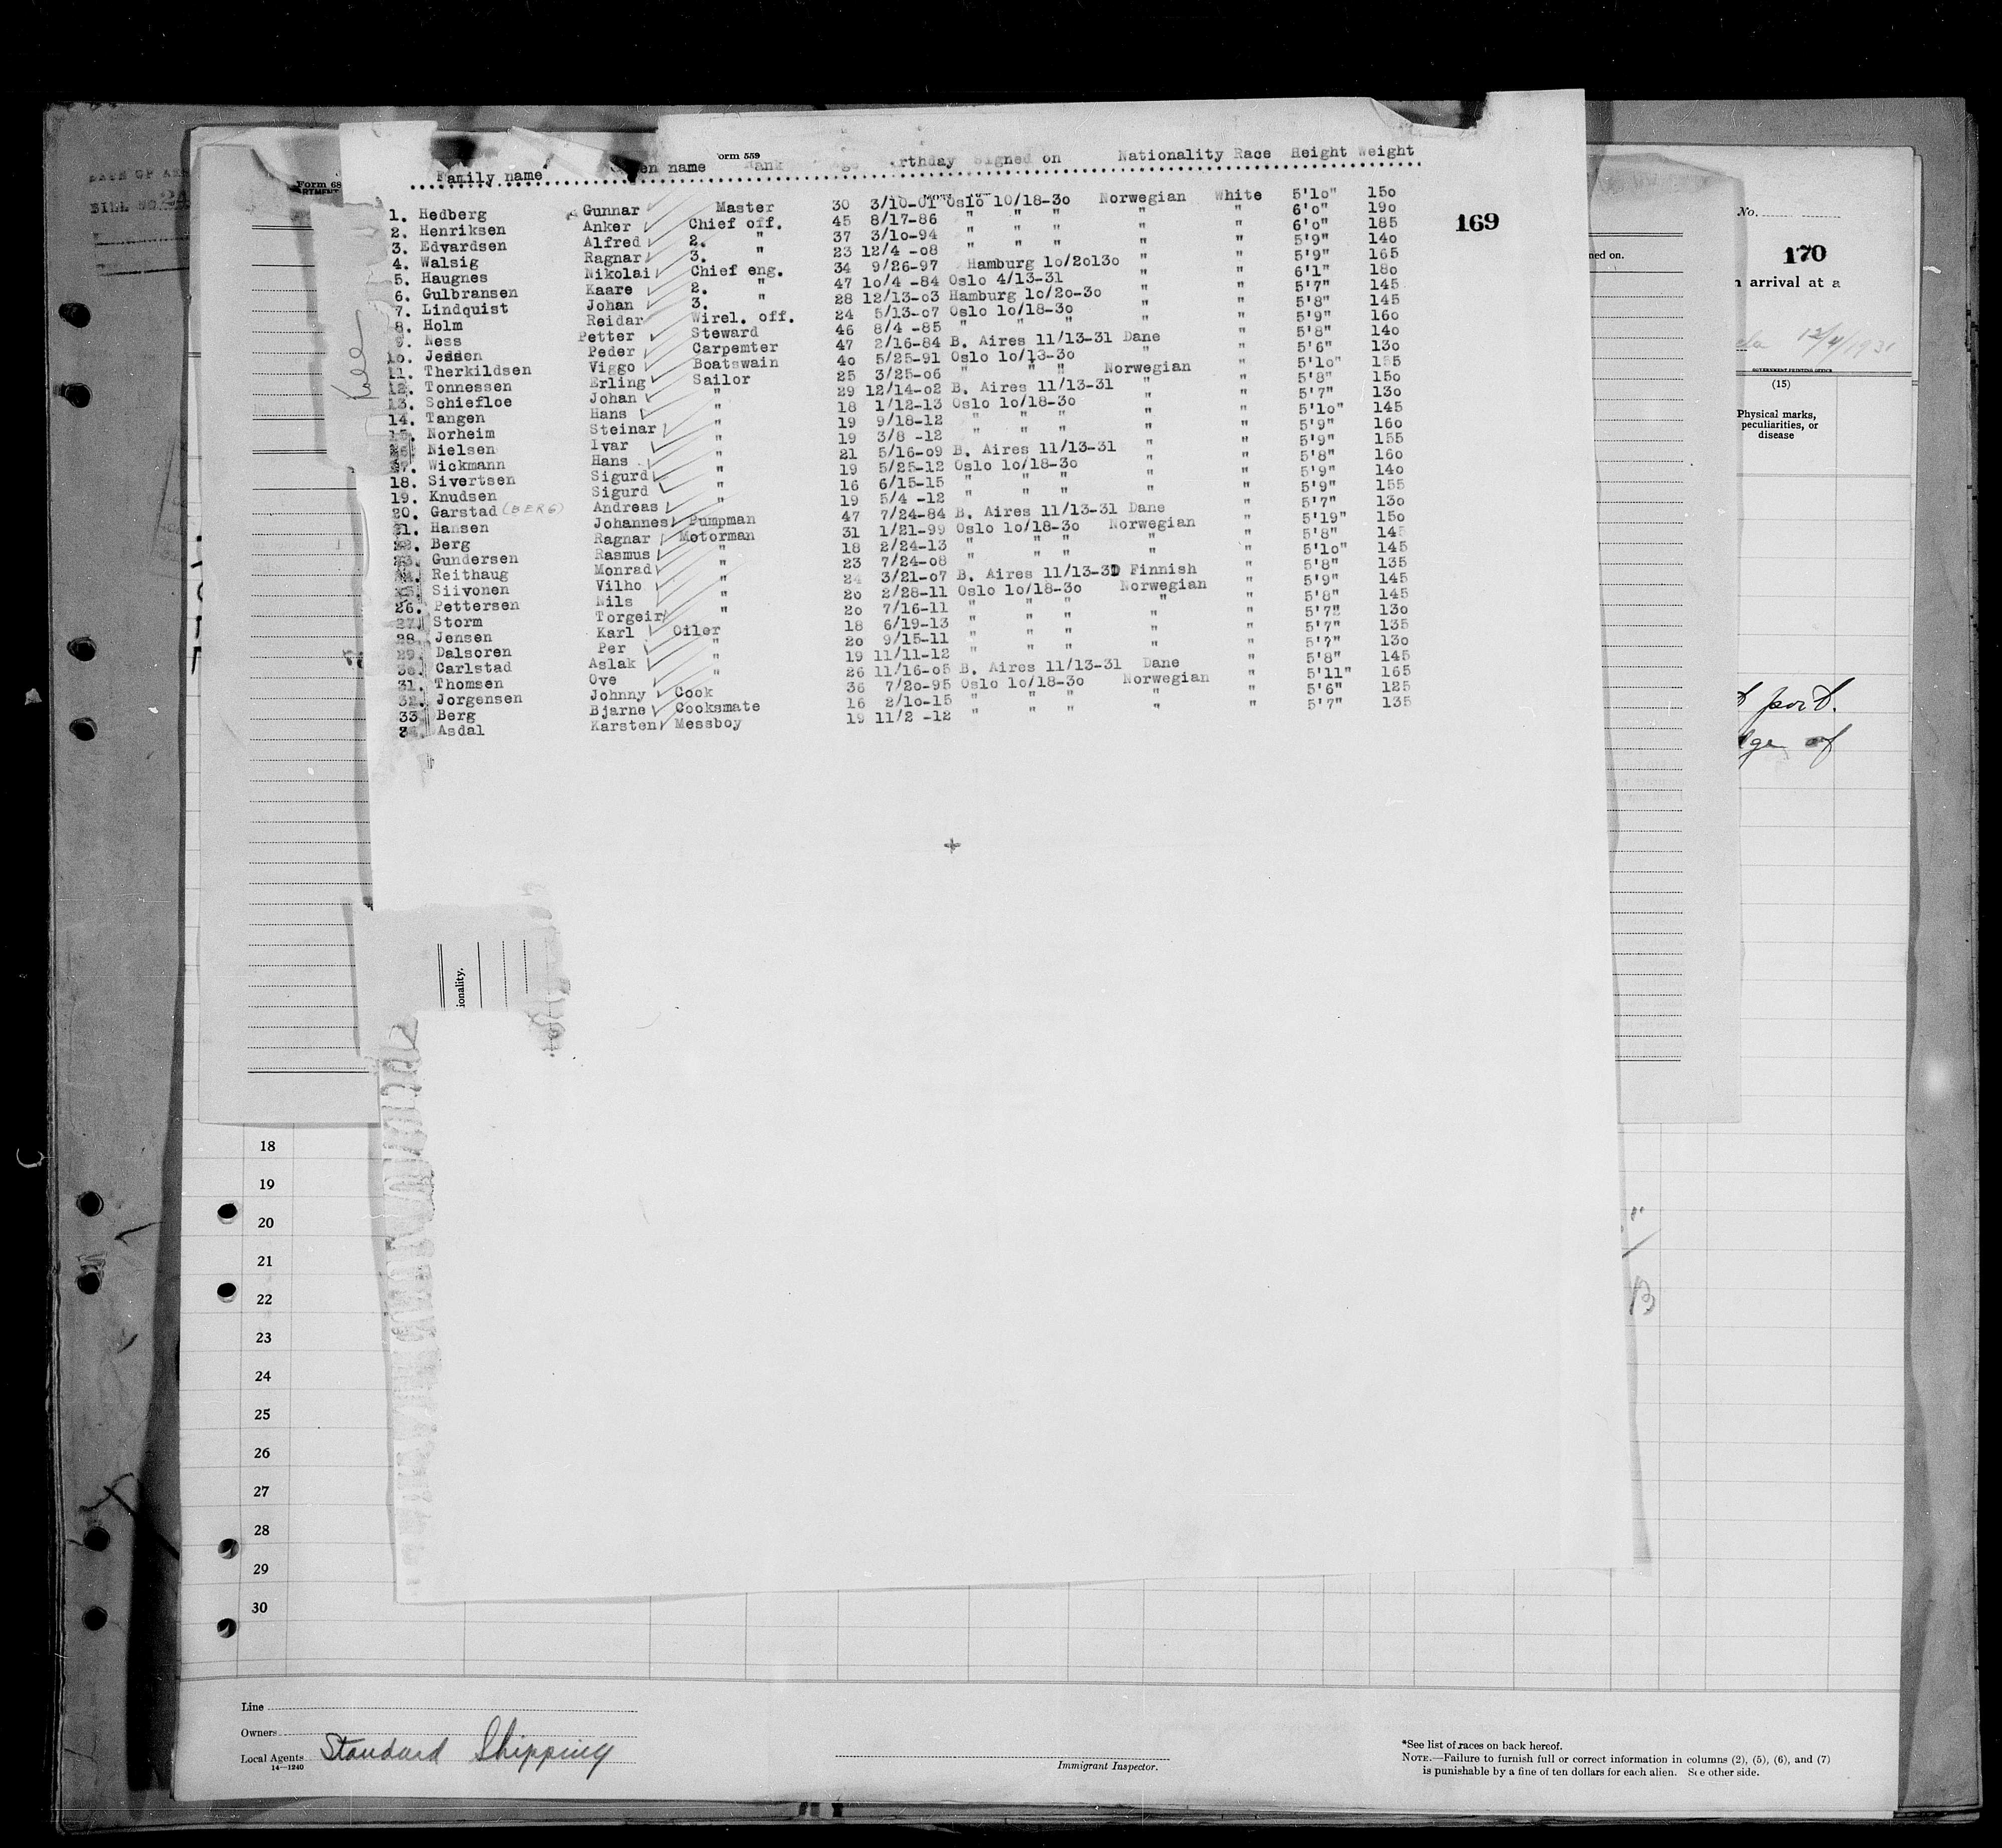 Form 559
Family name en name ank rthday Signed on Nationality Race Height Weight
Form 68
1. Hedberg Gunnar Master 30 3/10-01 Oslo 10/18-30 Norwegian White 5'10" 150
2. Henriksen Anker Chief off. 45 8/17-86 " " " " " 6'0" 190
3. Edvardsen Alfred 2. " 37 3/10-94 " " " " " 6'0" 185
4. Walsig Ragnar 3. " 23 12/4 -08 " " " " " 5'9" 140
5. Haugnes Nikolai Chief eng. 34 9/26-97 Hamburg 10/20130 " " 5'9" 165
6. Gulbransen Kaare 2. " 47 10/4 -84 Oslo 4/13-31 " " 6'1" 180
7. Lindquist Johan 3. " 28 12/13-03 Hamburg 10/20-30 " " 5'7" 145
8. Holm Reidar Wirel. off. 24 5/13-07 Oslo 10/18-30 " " 5'8" 145
9. Ness Petter Steward 46 8/4 -85 " " " " " 5'9" 160
10. Jessen Peder Carpemter 47 2/16-84 B. Aires 11/13-31 Dane " 5'8" 140
11. Therkildsen Viggo Boatswain 40 5/25-91 Oslo 10/13-30 " " 5'6" 130
12. Tonnessen Erling Sailor 25 3/25-06 " " " Norwegian " 5'10" 155
13. Schiefloe Johan " 29 12/14-02 B. Aires 11/13-31 " " 5'8" 150
14. Tangen Hans " 18 1/12-13 Oslo 10/18-30 " " 5'7" 130
15. Norheim Steinar " 19 9/18-12 " " " " " 5'10" 145
16. Nielsen Ivar " 19 3/8 -12 " " " " " 5'9" 160
17. Wickmann Hans " 21 5/16-09 B. Aires 11/13-31 " " 5'9" 155
18. Sivertsen Sigurd " 19 5/25-12 Oslo 10/18-30 " " 5'8" 160
19. Knudsen Sigurd " 16 6/15-15 " " " " " 5'9" 140
20. Garstad (BERG) Andreas " 19 5/4 -12 " " " " " 5'9" 155
21. Hansen Johannes Pumpman 47 7/24-84 B. Aires 11/13-31 Dane " 5'7" 130
22. Berg Ragnar Motorman 31 1/21-99 Oslo 10/18-30 Norwegian " 5'19" 150
23. Gundersen Rasmus " 18 2/24-13 " " " " " 5'8" 145
24. Reithaug Monrad " 23 7/24-08 " " " " " 5'10" 145
25. Siivonen Vilho " 24 3/21-07 B. Aires 11/13-31 Finnish " 5'8" 135
26. Pettersen Nils " 20 2/28-11 Oslo 10/18-30 Norwegian " 5'9" 145
27. Storm Torgeir " 20 7/16-11 " " " " " 5'8" 145
28. Jensen Karl Oiler 18 6/19-13 " " " " " 5'7" 130
29. Dalsoren Per " 20 9/15-11 " " " " " 5'7" 135
30. Carlstad Aslak " 19 11/11-12 " " " " " 5'7" 130
31. Thomsen Ove " 26 11/16-05 B. Aires 11/13-31 Dane " 5'8" 145
32. Jorgensen Johnny Cook 36 7/20-95 Oslo 10/18-30 Norwegian " 5'11" 165
33 Berg Bjarne Cooksmate 16 2/10-15 " " " " " 5'6" 125
34. Asdal Karsten Messboy 19 11/2 -12 " " " " " 5'7" 135
169
No.
170
ned on.
arrival at a
12/4/1931
GOVERNMENT PRINTING OFFICE
(15)
Physical marks,
peculiarities, or
disease
port.
of
ionality.
18
19
20
21
22
23
24
25
26
27
28
29
30
B
Line
Owners
Local Agents Standard Shipping
14—1240
Immigrant Inspector.
*See list of races on back hereof.
NOTE.—Failure to furnish full or correct information in columns (2), (5), (6), and (7)
is punishable by a fine of ten dollars for each alien. See other side.